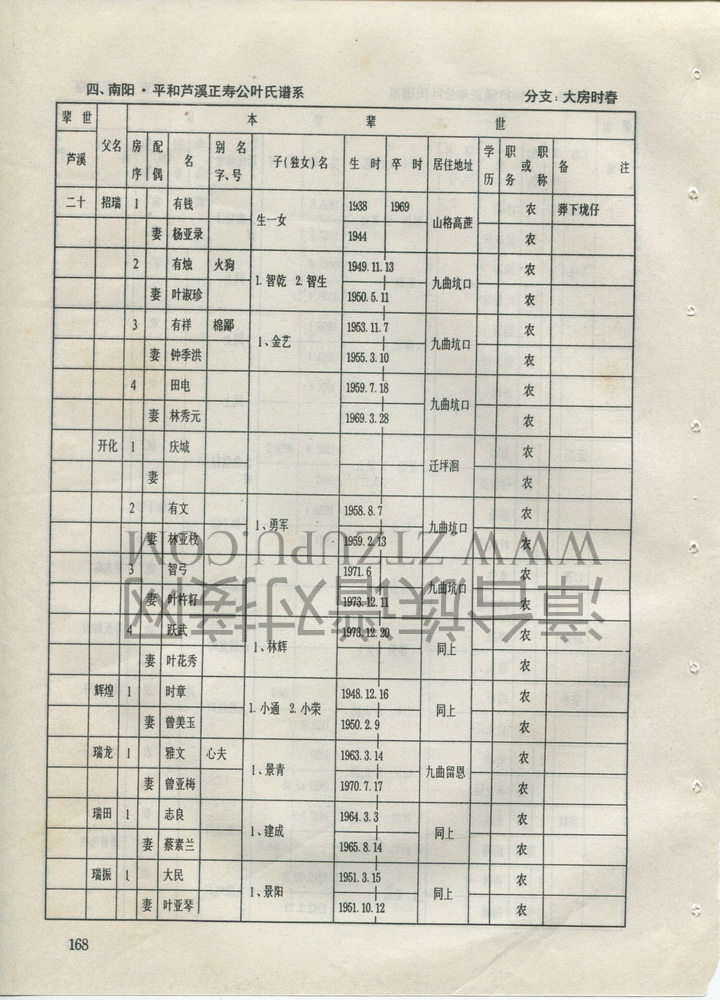 四、南阳·平和芦溪正寿公叶氏谱系 分支：大房时春
辈世 父名 本辈世
芦溪 房序 配偶 名 别名字、号 子(独女)名 生时 卒时 居住地址 学历 职务或职称 备注
二十 招瑞 1 有钱 生一女 1938 1969 山格高蔗 农 葬下垅仔
妻 杨亚录 1944 农
2 有烛 火狗 1.智乾 2.智生 1949.11.13 九曲坑口 农
妻 叶淑珍 1950.5.11 农
3 有祥 棉鄙 1、金艺 1953.11.7 九曲坑口 农
妻 钟季洪 1955.3.10 农
4 田电 1959.7.18 九曲坑口 农
妻 林秀元 1969.3.28 农
开化 1 庆城 迁坪洄 农
妻 农
2 有文 1、勇军 1958.8.7 九曲坑口 农
妻 林亚枝 1959.2.13 农
3 智弓 1971.6 九曲坑口 农
妻 叶杵籽 1973.12.11 农
4 跃武 1、林辉 1973.12.20 同上 农
妻 叶花秀 农
辉煌 1 时章 1.小通 2.小荣 1948.12.16 同上 农
妻 曾美玉 1950.2.9 农
瑞龙 1 雅文 心夫 1、景青 1963.3.14 九曲留恩 农
妻 曾亚梅 1970.7.17 农
瑞田 1 志良 1、建成 1964.3.3 同上 农
妻 蔡素兰 1965.8.14 农
瑞振 1 大民 1、景阳 1951.3.15 同上 农
妻 叶亚琴 1951.10.12 农
168
WWW.ZTZUPU.COM
漳台族谱对接网